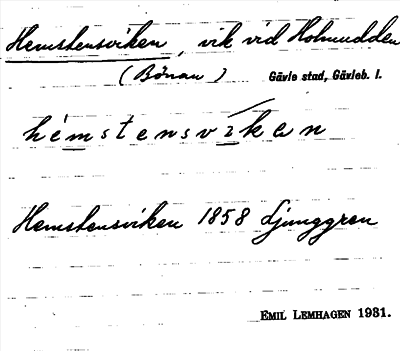 Hemstensviken, vik vid Holmudden
(Bönan) Gävle stad, Gävleb. l.
hémstensvìken
Hemstensviken 1858 Ljunggren
EMIL LEMHAGEN 1931.